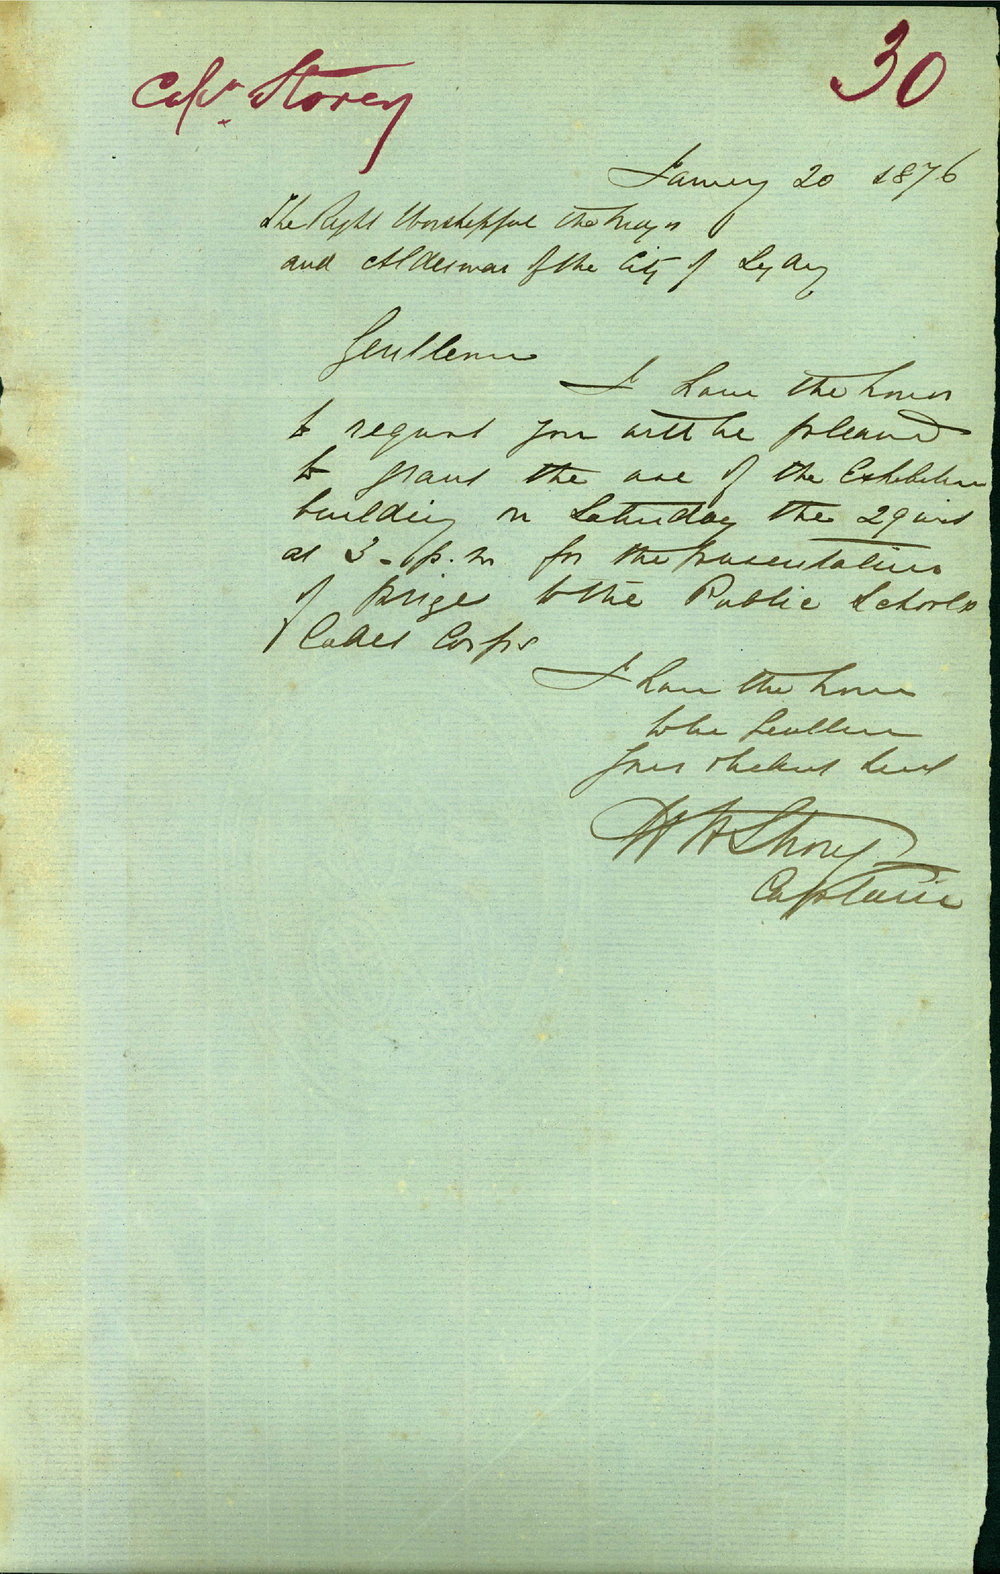 Capn. Storey
30
January 20 1876
The Right Worshipful the Mayor
and Aldermen of the City of Sydney
Gentlemen
I have the honor
to request you will be pleased
to grant the use of the Exhibition
building on Saturday the 29 inst
at 3 - p.m for the presentation
of prizes to the Public Schools
Cadet Corps
I have the honor
to be Gentlemen
Your obedient Servt
W W Storey
Captain